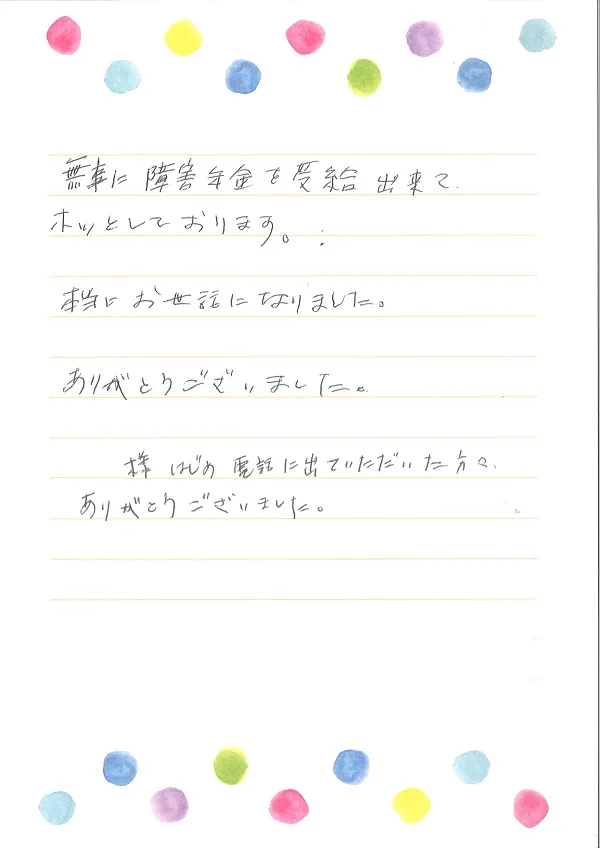 無事に障害年金を受給出来て、
ホッとしております。
本当にお世話になりました。
ありがとうございました。
様はじめ電話に出ていただいた方々、
ありがとうございました。